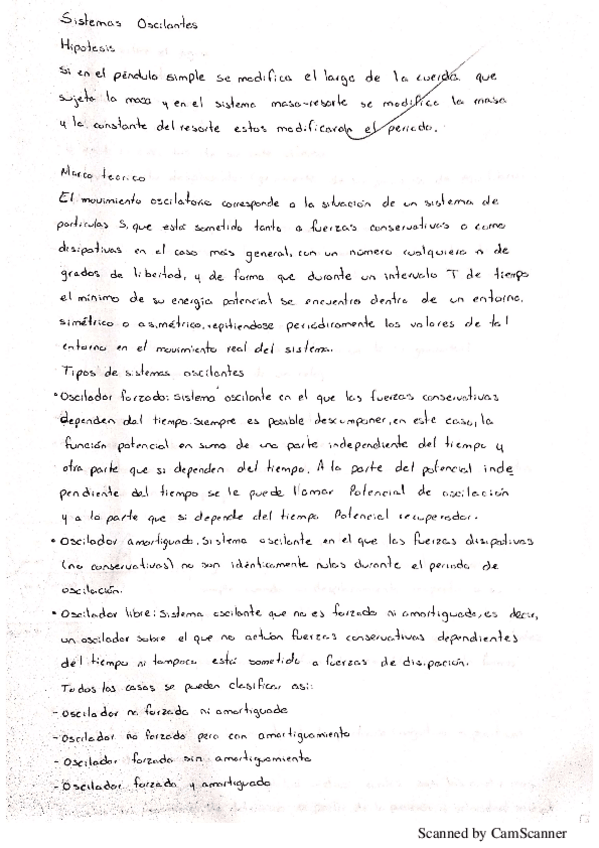 Sistemas Oscilantes
Hipotesis
Si en el péndulo simple se modifica el largo de la cuerda que
sujeta la masa y en el sistema masa-resorte se modifica la masa
y la constante del resorte estos modificaran el periodo.
Marco teorico
El movimiento oscilatorio corresponde a la situación de un sistema de
particulas S, que está sometido tanto a fuerzas conservativas o como
disipativas en el caso más general, con un número cualquiera n de
grados de libertad, y de forma que durante un intervalo T de tiempo
el mínimo de su energia potencial se encuentra dentro de un entorno,
simétrico o asimétrico, repitiendose periódicamente los valores de tal
entorno en el movimiento real del sistema.
Tipos de sistemas oscilantes
• Oscilador forzado: sistema oscilante en el que las fuerzas conservativas
dependen del tiempo. Siempre es posible descomponer, en este caso, la
función potencial en suma de una parte independiente del tiempo y
otra parte que si dependen del tiempo. A la parte del potencial inde
pendiente del tiempo se le puede llamar Potencial de oscilación
y a la parte que si depende del tiempo Potencial recuperador.
• Oscilador amortiguado. Sistema oscilante en el que las fuerzas disipativas
(no conservativas) no son idénticamente nulas durante el periodo de
oscilación.
• Oscilador libre: Sistema oscilante que no es forzado ni amortiguado, es decir,
un oscilador sobre el que no actúan fuerzas conservativas dependientes
del tiempo ni tampoco está sometido a fuerzas de disipación.
Todos los casos se pueden clasificar asi:
- Oscilador no forzado ni amortiguado
- Oscilador no forzado pero con amortiguamiento
- Oscilador forzado sin amortiguamiento
- Oscilador forzado y amortiguado
Scanned by CamScanner